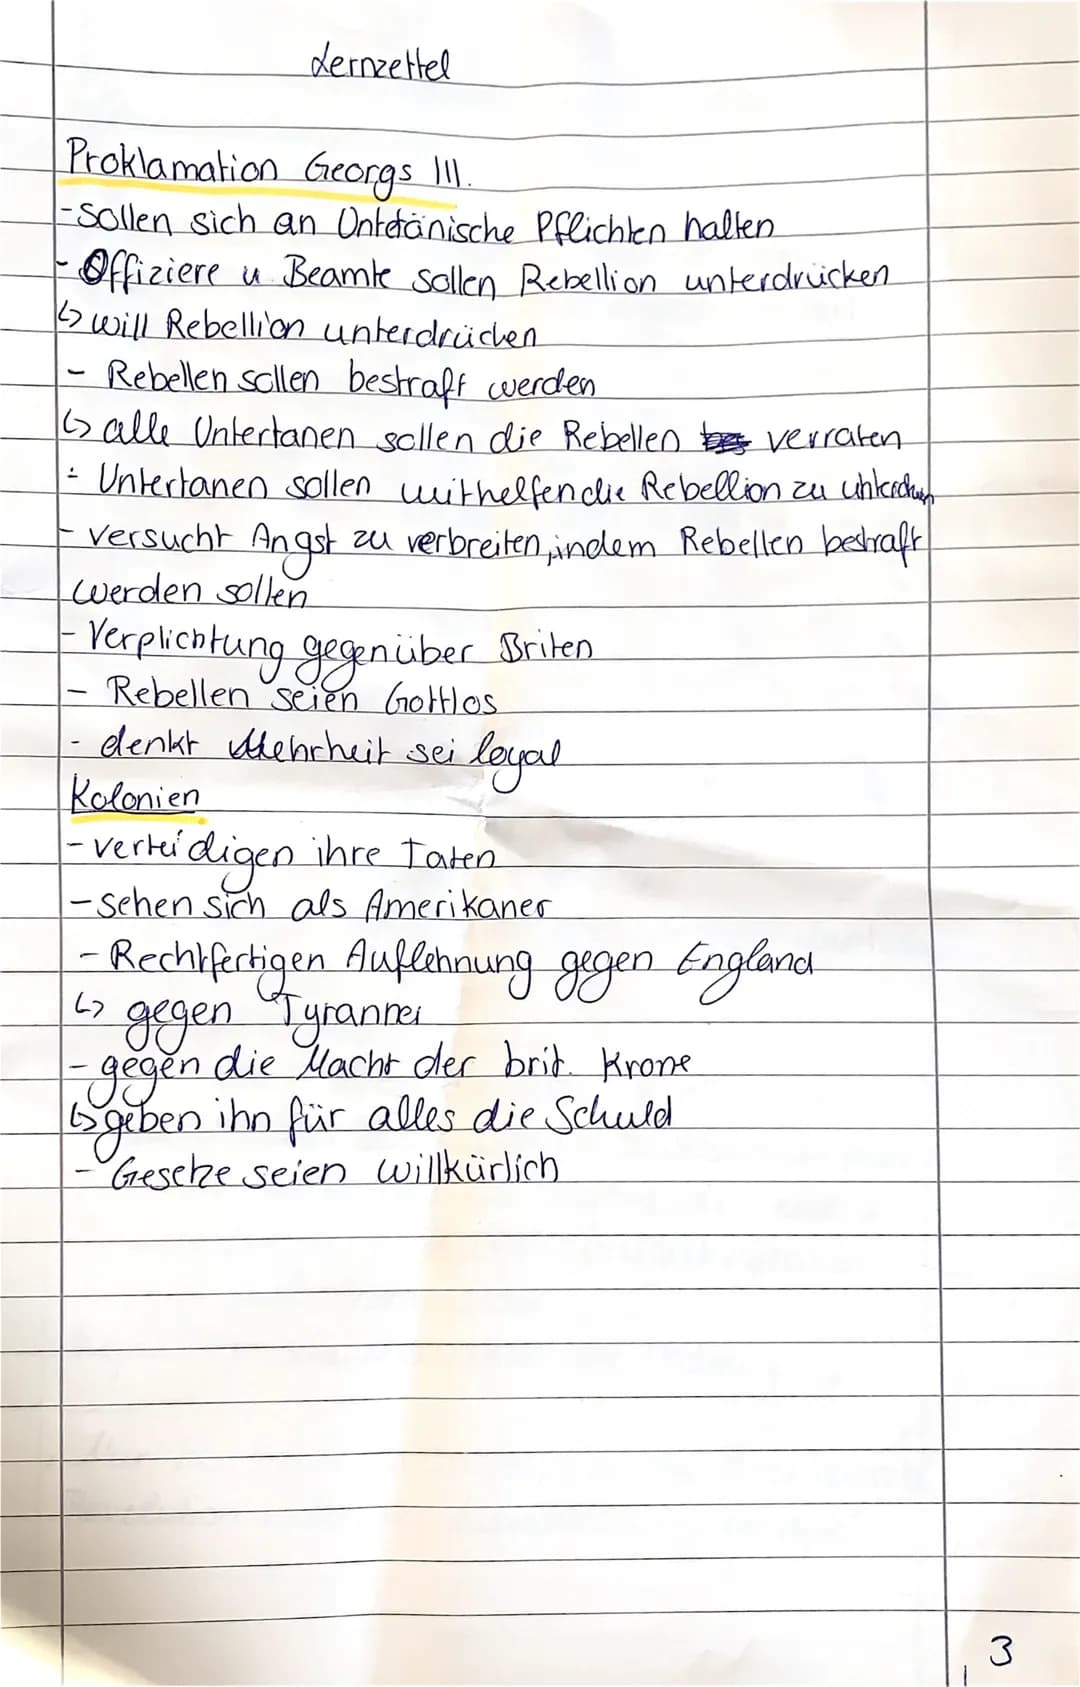 Lernzettel
Proklamation Georgs III.
-Sollen sich an Untetänische Pflichten halten
- Offiziere u Beamte sollen Rebellion unterdrücken
↳ will Rebellion unterdrücken
- Rebellen sollen bestraft werden
↳ alle Untertanen sollen die Rebellen verraten
- Untertanen sollen mithelfen die Rebellion zu
- versucht Angst zu verbreiten, indem Rebellen bestraft
werden sollen
- Verplichtung gegenüber Briten
- Rebellen seien Gottlos
- denkt Mehrheit sei loyal
Kolonien
- verteidigen ihre Taten
- sehen sich als Amerikaner
- Rechtfertigen Auflehnung gegen England
↳ gegen Tyrannei
- gegen die Macht der brit. Krone
↳ geben ihn für alles die Schuld
- Gesetze seien willkürlich
3